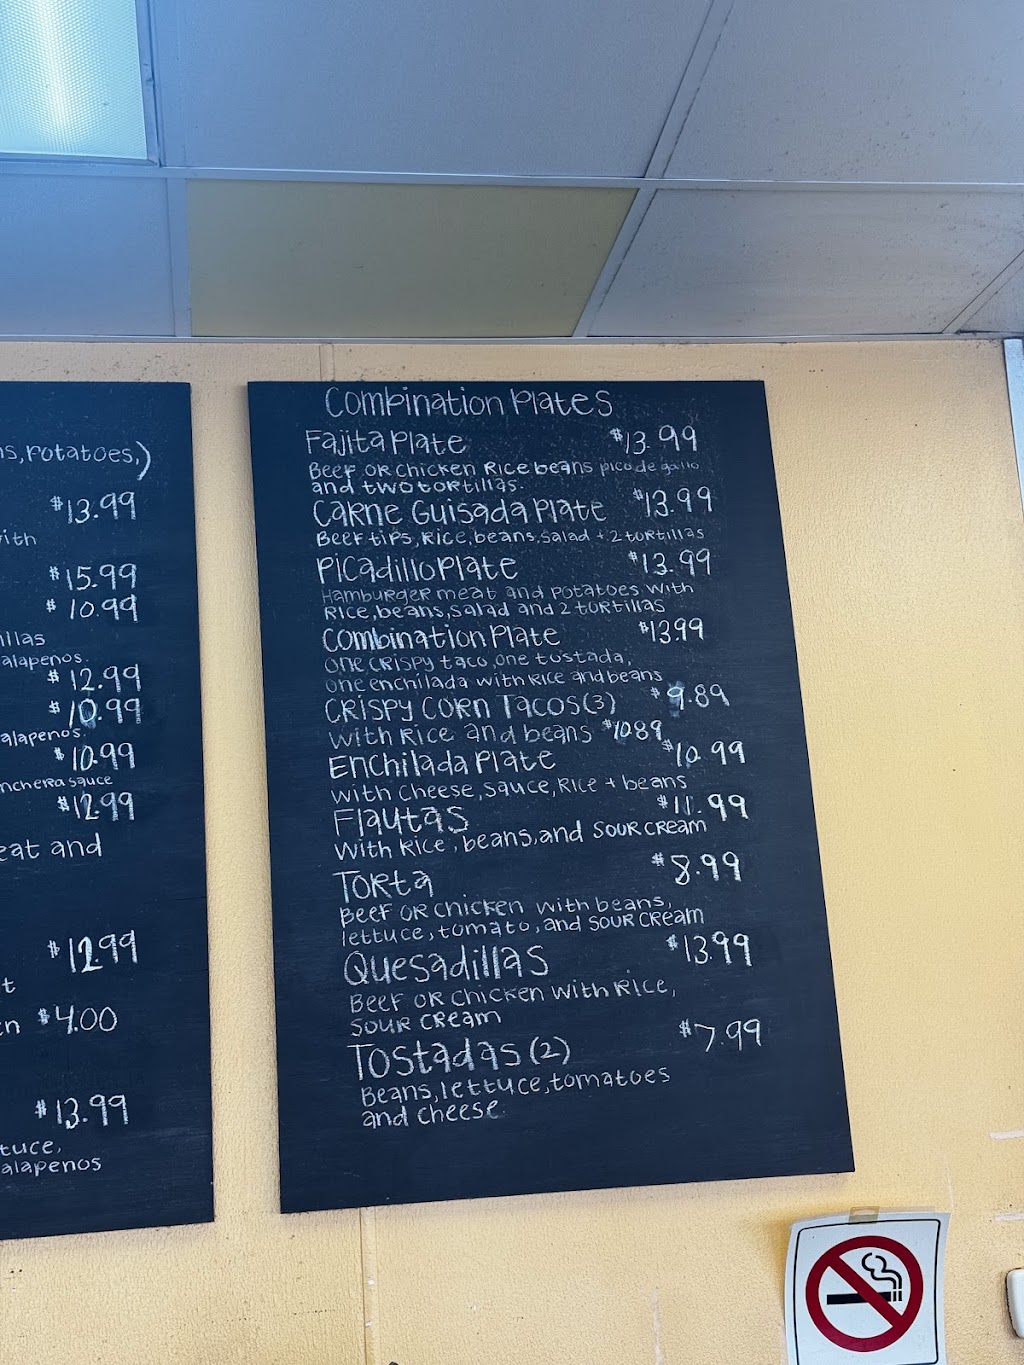 ns, Potatoes,)
$13.99
with
$15.99
$10.99
illas
alapenos.
$12.99
$10.99
alapenos.
$10.99
nchera sauce
$12.99
eat and
$12.99
t
en $4.00
$13.99
tuce,
alapenos
Combination Plates
Fajita Plate $13.99
Beef or chicken Rice beans pico de gallo
and two tortillas.
Carne Guisada Plate $13.99
Beef tips, Rice, beans, salad + 2 tortillas
Picadillo Plate $13.99
Hamburger meat and potatoes with
Rice, beans, salad and 2 tortillas
Combination Plate $13.99
one crispy taco, one tostada,
one enchilada with Rice and beans
Crispy Corn Tacos (3) $9.89
with Rice and beans $10.89
Enchilada Plate $10.99
with cheese, sauce, Rice + beans
Flautas $11.99
with Rice, beans, and sour cream
Torta $8.99
Beef or chicken with beans,
lettuce, tomato, and sour cream
Quesadillas $13.99
Beef or chicken with Rice,
sour cream
Tostadas (2) $7.99
Beans, lettuce, tomatoes
and cheese.